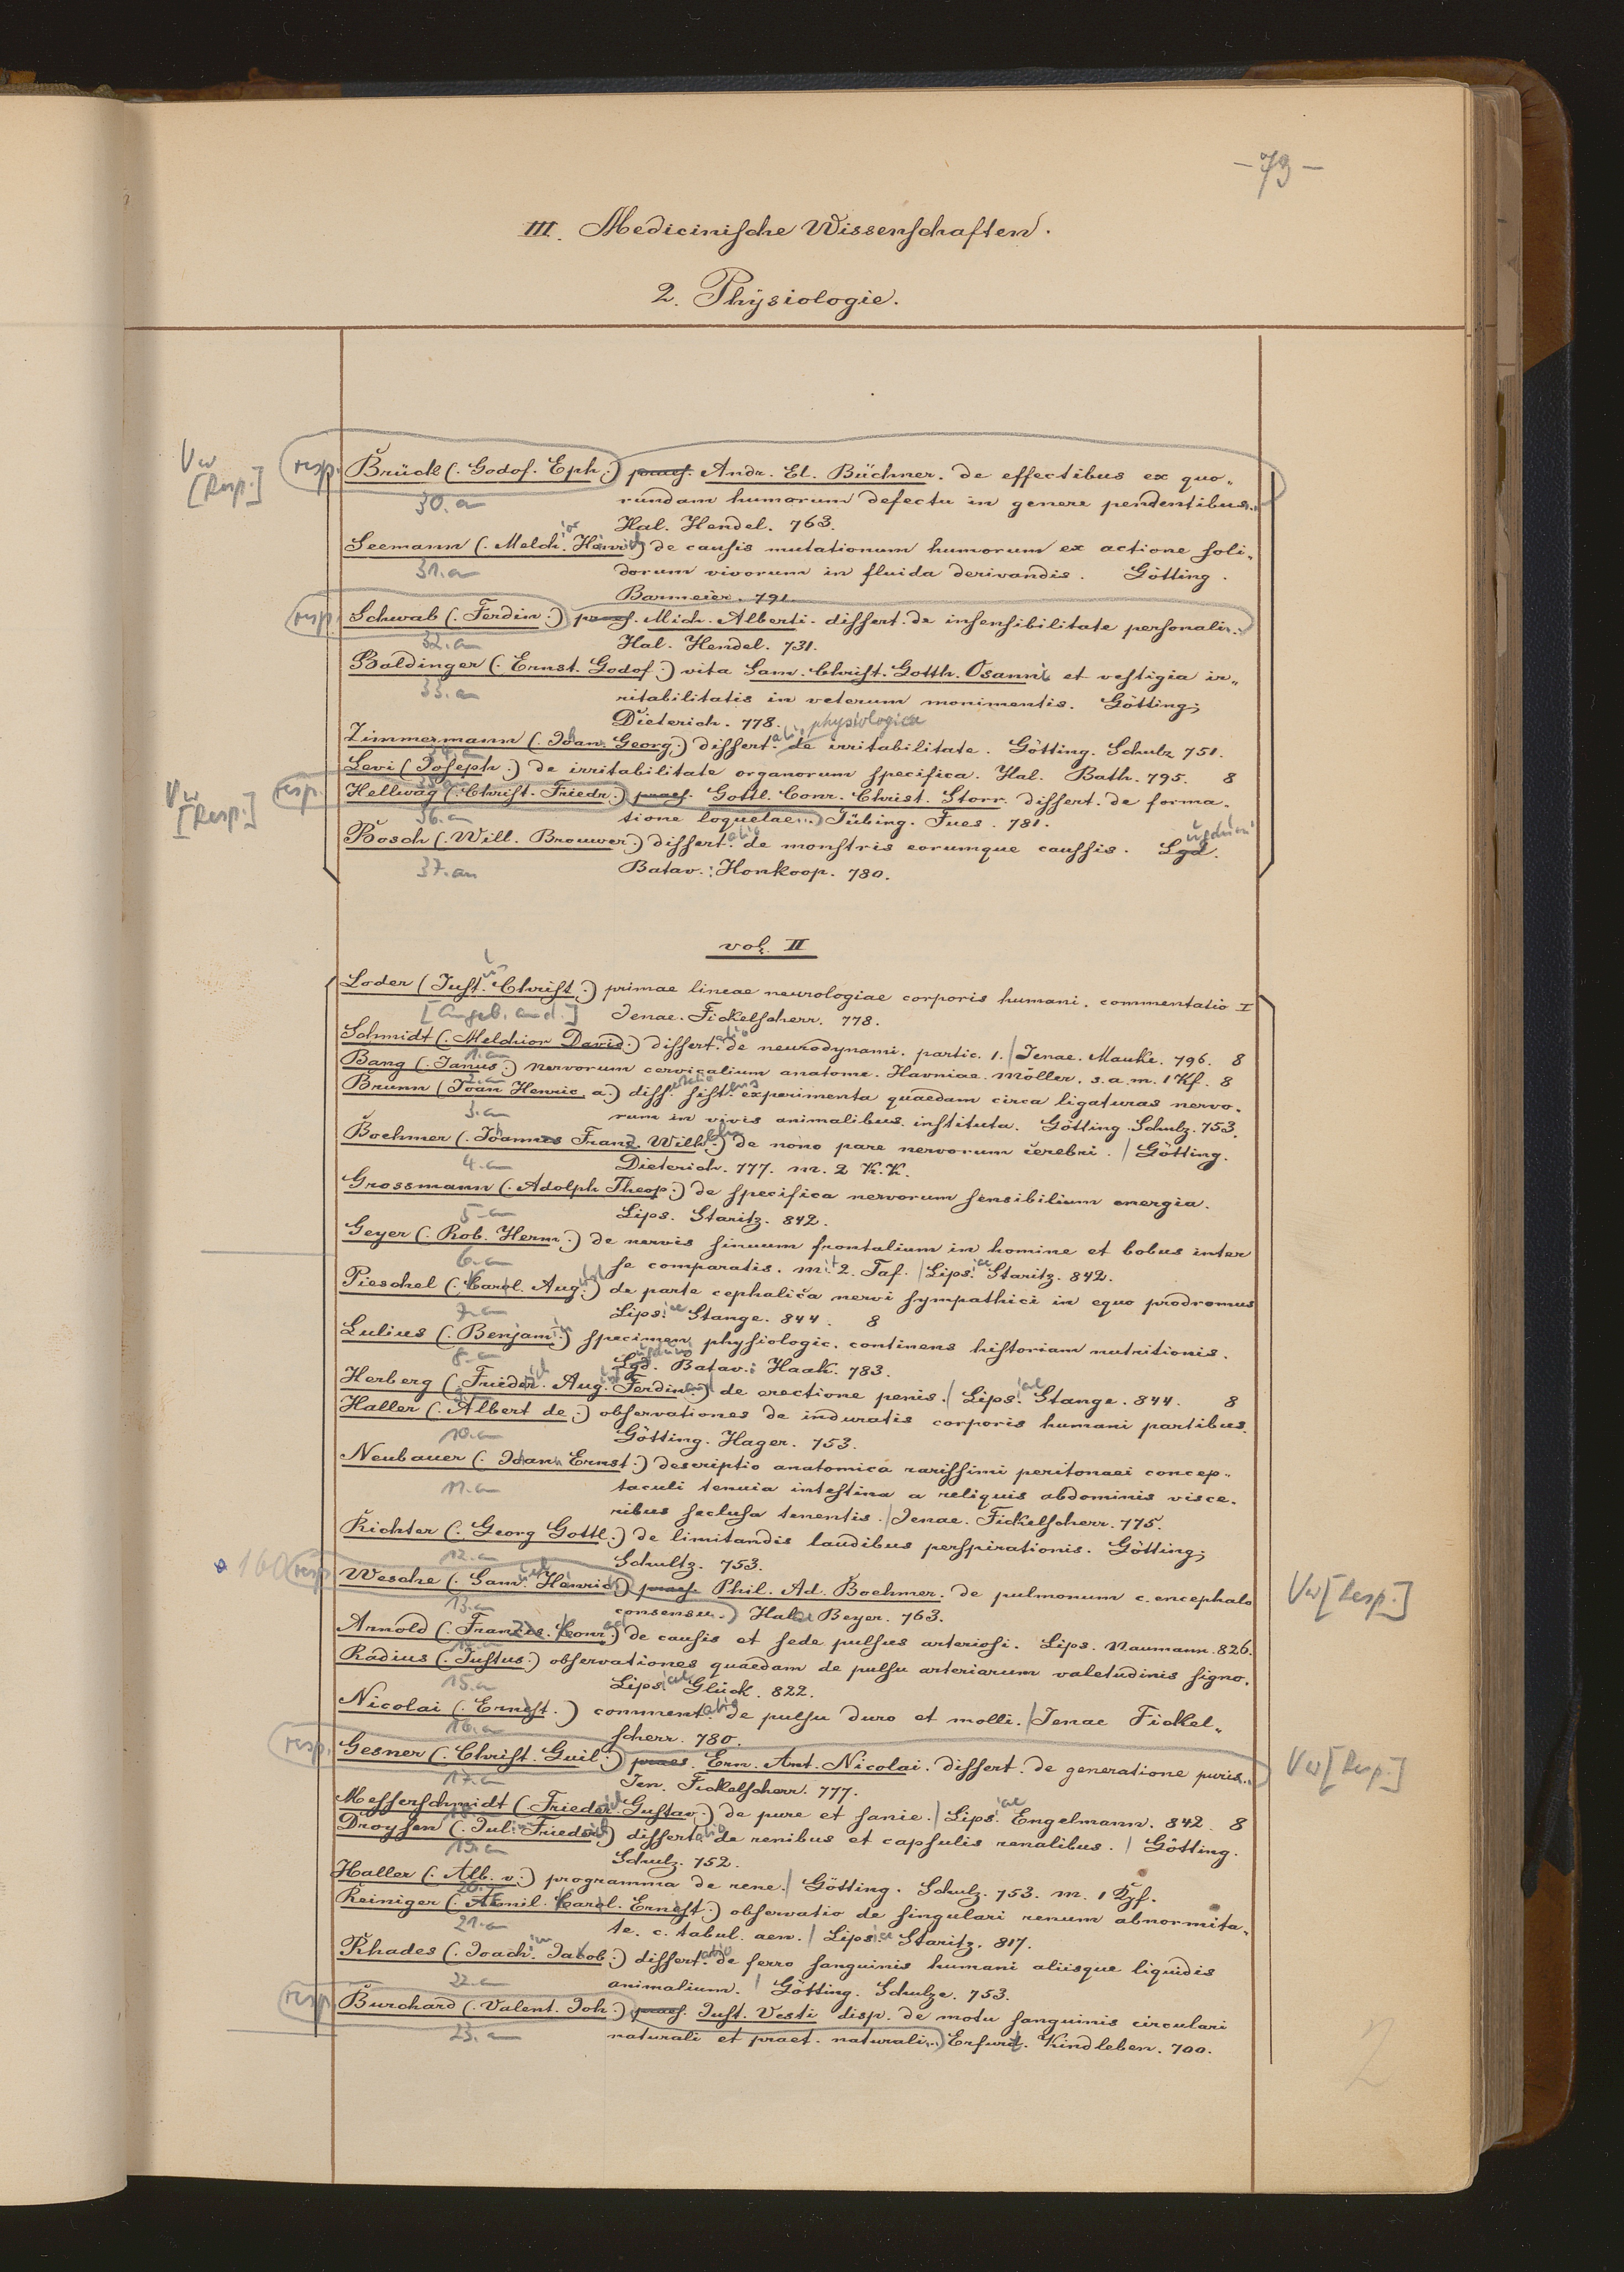 – 73 –
III. Medicinische Wissenschaften.
2. Physiologie.
Vw [Resp.]
resp. Brück (. Godof. Eph.) praes. Andr. El. Büchner. de effectibus ex quo„
30. a rundam humorum defectu in genere pendentibus..
Hal. Hendel. 763.
Seemann (. Melch. Henrich) de causis mutationum humorum ex actione soli„
31. a dorum vivorum in fluida derivandis. Götting.
Barmeier. 791.
resp. Schwab (. Ferdin.) praes. Mich. Alberti. dissert. de insensibilitate personali..
32. a Hal. Hendel. 731.
Baldinger (. Ernst. Godof.) vita Sam. Christ. Gotth. Osanni et vestigia ir„
33. a ritabilitatis in veterum monimentis. Götting;
Dieterich. 778.
Zimmermann (. Johan. Georg.) dissertatio physiologica de irritabilitate. Götting. Schulz 751.
34. a
Levi (Joseph.) de irritabilitate organorum specifica. Hal. Bath. 795. 8
35. a
Vw [Resp.]
resp. Hellwag (. Christ. Friedr.) praes. Gottl. Conr. Christ. Storr. dissert. de forma.
36. a tione loquelae...) Tübing. Fues. 781.
Bosch (. Will. Brouwer.) dissertatio de monstris eorumque caussis. Lgd.
37. an Batav.: Honkoop. 780.
vol. II
Loder (Just. Christ.) primae lineae neurologiae corporis humani. commentatio I
[Angeb. an d.] Jenae. Fickelscherr. 778.
Schmidt (. Melchior David.) dissertatio de neurodynami. partic. 1. / Jenae. Mauke. 796. 8
1. a
Bang (. Janus.) nervorum cervicalium anatome. Havniae. Möller. s. a. m. 1 Kf. 8
2. a
Brunn (Joan Henric. a.) diss. sistens experimenta quaedam circa ligaturas nervo.
3. a rum in vivis animalibus instituta. Götting. Schulz. 753.
Boehmer (. Johannes Franz. Wilh.) de nono pare nervorum cerebri. / Götting.
4. a Dieterich. 777. m. 2 K.K.
Grossmann (. Adolph Theop.) de specifica nervorum sensibilium energia.
5. a Lips. Staritz. 842.
Geyer (. Rob. Herm.) de nervis sinuum frontalium in homine et bobus inter
6. a se comparatis. mit 2. Taf. / Lipsiae Staritz. 842.
Pieschel (. Carol. Aug.) de parte cephalica nervi sympathici in equo prodromus
7. a Lipsiae Stange. 844. 8
Lulius (. Benjamin) specimen physiologic. continens historiam nutritionis.
8. a Lgd. Batav.: Haak. 783.
Herberg (. Friedr. Aug. Ferdin.) de erectione penis. / Lipsiae Stange. 844. 8
9. a
Haller (. Albert de.) observationes de induratis corporis humani partibus.
10. a Götting. Hager. 753.
Neubauer (. Johan. Ernst.) descriptio anatomica rarissimi peritonaei concep„
11. a taculi tenuia intestina a reliquis abdominis visce.
ribus seclusa tenentis. / Jenae. Fickelscherr. 775.
Richter (. Georg Gottl.) de limitandis laudibus perspirationis. Götting;
12. a Schultz. 753.
160 resp. Wesche (. Sam. Henrich) praes. Phil. Ad. Boehmer. de pulmonum c. encephalo Vw [Resp.]
13. a consensu.) Halae Beyer. 763.
Arnold (. Franz. Conr.) de causis et sede pulsus arteriosi. Lips. Naumann. 826.
14. a
Radius (. Justus.) observationes quaedam de pulsu arteriarum valetudinis signo.
15. a Lipsiae Glück. 822.
Nicolai (. Ernst.) commentatio de pulsu duro et molli. / Jenae Fickel„
16. a scherr. 780.
resp. Gesner (. Christ. Guil.) praes. Ern. Ant. Nicolai. dissert. de generatione puris.. Vw [Resp.]
17. a Jen. Fickelscherr. 777.
Messerschmidt (. Friedr. Gustav.) de pure et sanie. / Lipsiae Engelmann. 842. 8
18. a
Droysen (. Jul. Friedrich) dissertatio de renibus et capsulis renalibus. / Götting.
19. a Schulz. 752.
Haller (. Alb. v.) programma de rene. / Götting. Schulz. 753. m. 1 Kpf.
20. a
Reiniger (. Aemil. Carol. Ernst.) observatio de singulari renum abnormita„
21. a te. c. tabul. aen. / Lipsiae Staritz. 817.
Rhades (. Joachim Jakob.) dissertatio de ferro sanguinis humani aliisque liquidis
22. a animalium. / Götting. Schulze. 753.
resp. Burchard (. Valent. Joh.) praes. Just. Vesti disp. de motu sanguinis circulari
23. a naturali et praet. naturali...) Erfurt. Kindleben. 700.
2